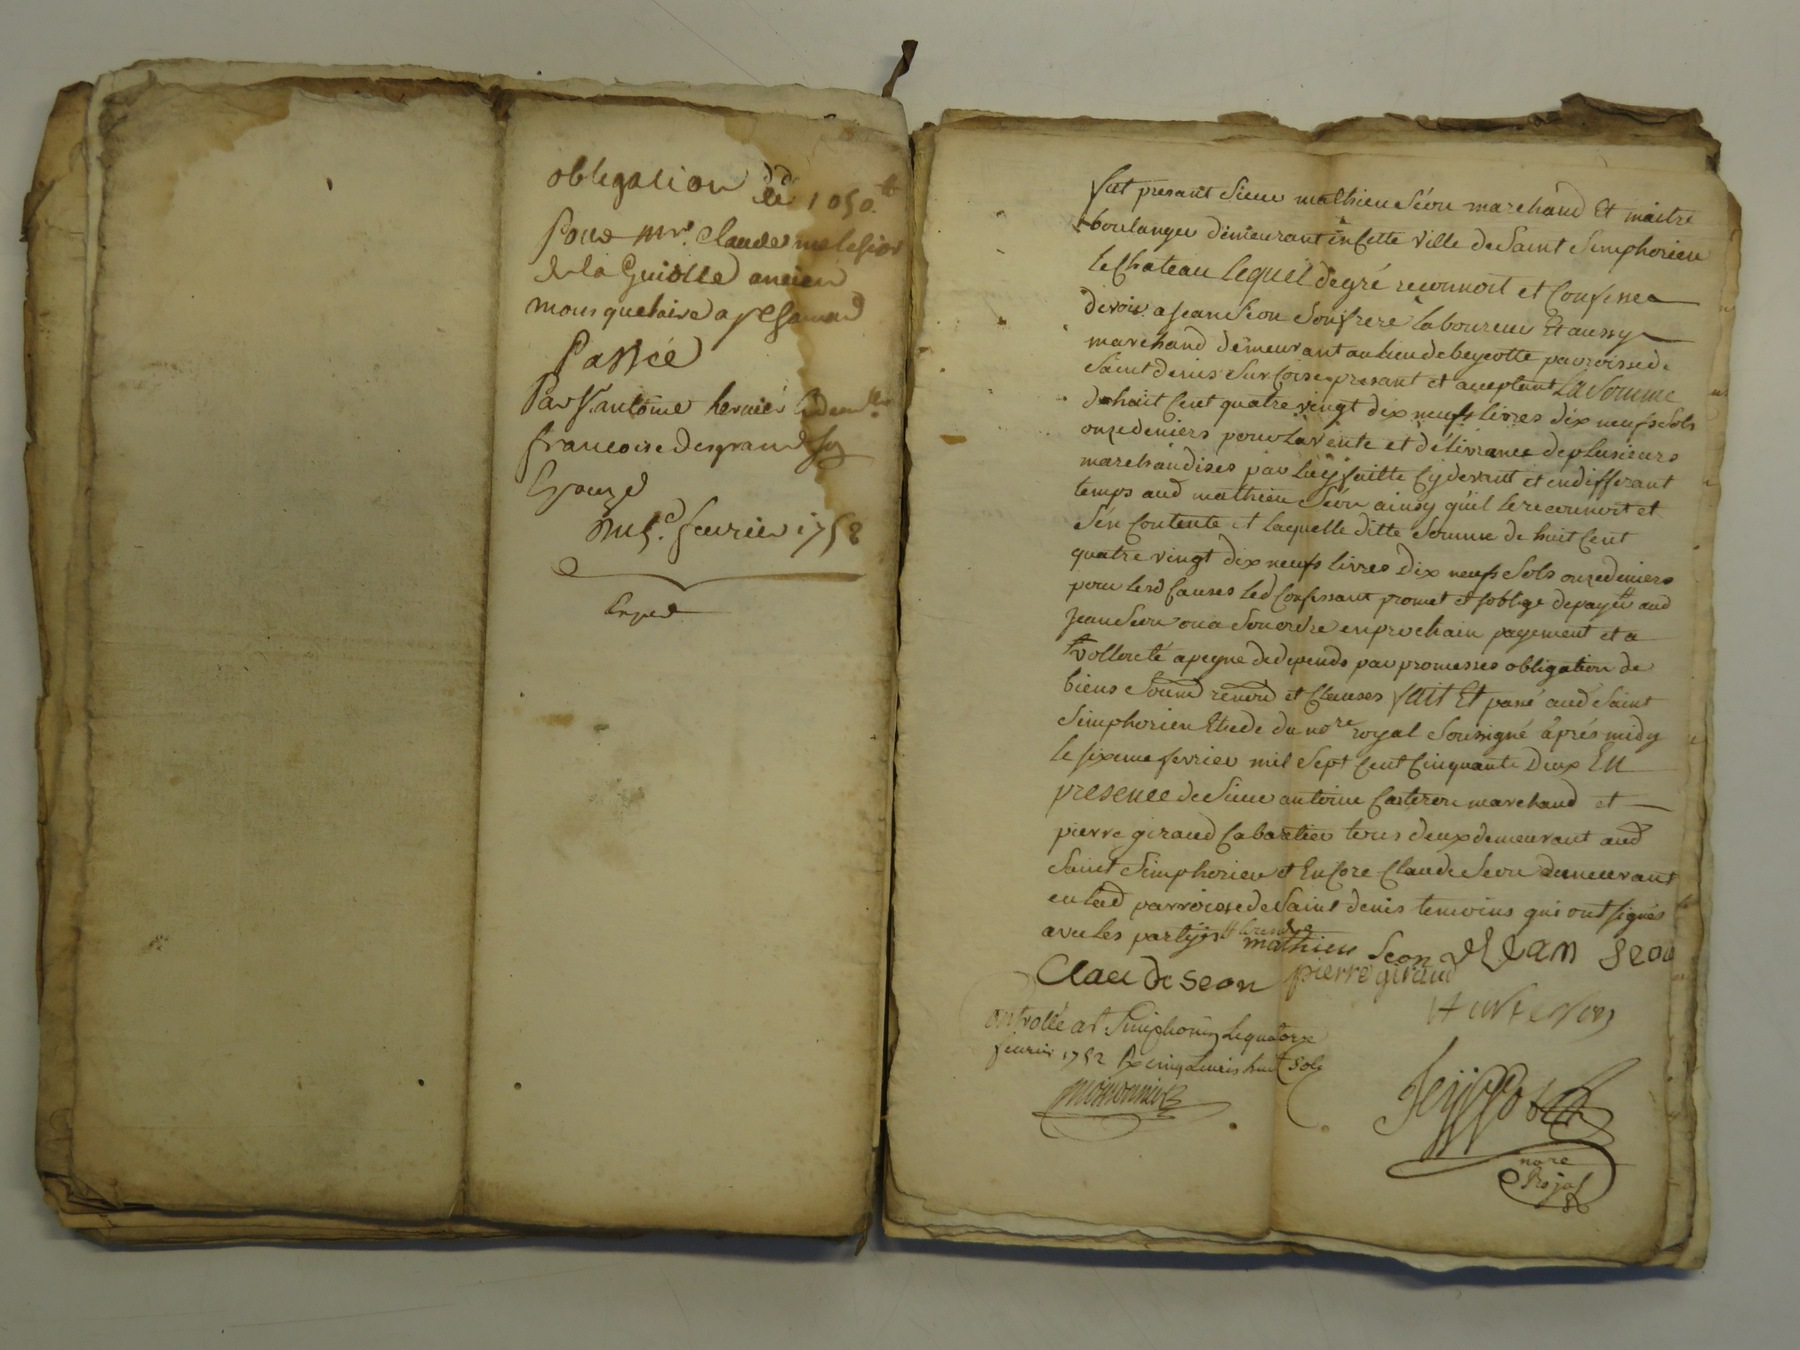 obligation de 1050 tt
Pour mr. Claude melchior
de la Guiolle ancien
mousquetaire a st Chamond
Passée
Par Sr. antoine hernier et dem.lle
francoise desgrand sa
Epouze
Du 5e. fevrier 1752
Exped
fut présant Sieur mathieu Séon marchand Et maitre
boulanger demeurant en Cette ville de Saint Simphorien
le Chateau lequel de gré reconnoit et Confesse
devoir a jean Séon Son frere laboureur Et aussy
marchand demeurant au lieu de beycotte parroisse de
Saint denis Sur Coise present et acceptant La Somme
de huit Cent quatre vingt dix neufs livres dix neufs Sols
onze deniers pour la vente et délivrance de plusieurs
marchandises par luy faitte Cy devant et en differant
temps aud mathieu Séon ainsy qu'il le reconnoit et
S'en Contente et laquelle ditte Somme de huit Cent
quatre vingt dix neufs livres Dix neufs Sols onze deniers
pour lesd Causes led Confessant promet et s'oblige de payer aud
jean Seon ou a Son ordre en prochain payement et a
volloncté a peyne de depends par promesses obligation de
biens Soumd renond et Clauses fait Et passé aud Saint
Simphorien Etude du nore royal Soussigné après midy
le sixieme fevrier mil Sept Cent Cinquante Deux En
presence de Sieur antoine Carteron marchand et
pierre giraud Cabartier tous deux demeurant aud
Saint Simphorien et Encore Claude Seon demeurant
en lad parroisse de Saint denis temoins qui ont signés
avec les partyes
mathieu Seon Jean Seon
Claude Seon pierre giraud
Carteron
Controllé a st Simphorien le quatorze
fevrier 1752 Rx cinq livres huit Sols
nore
Royal